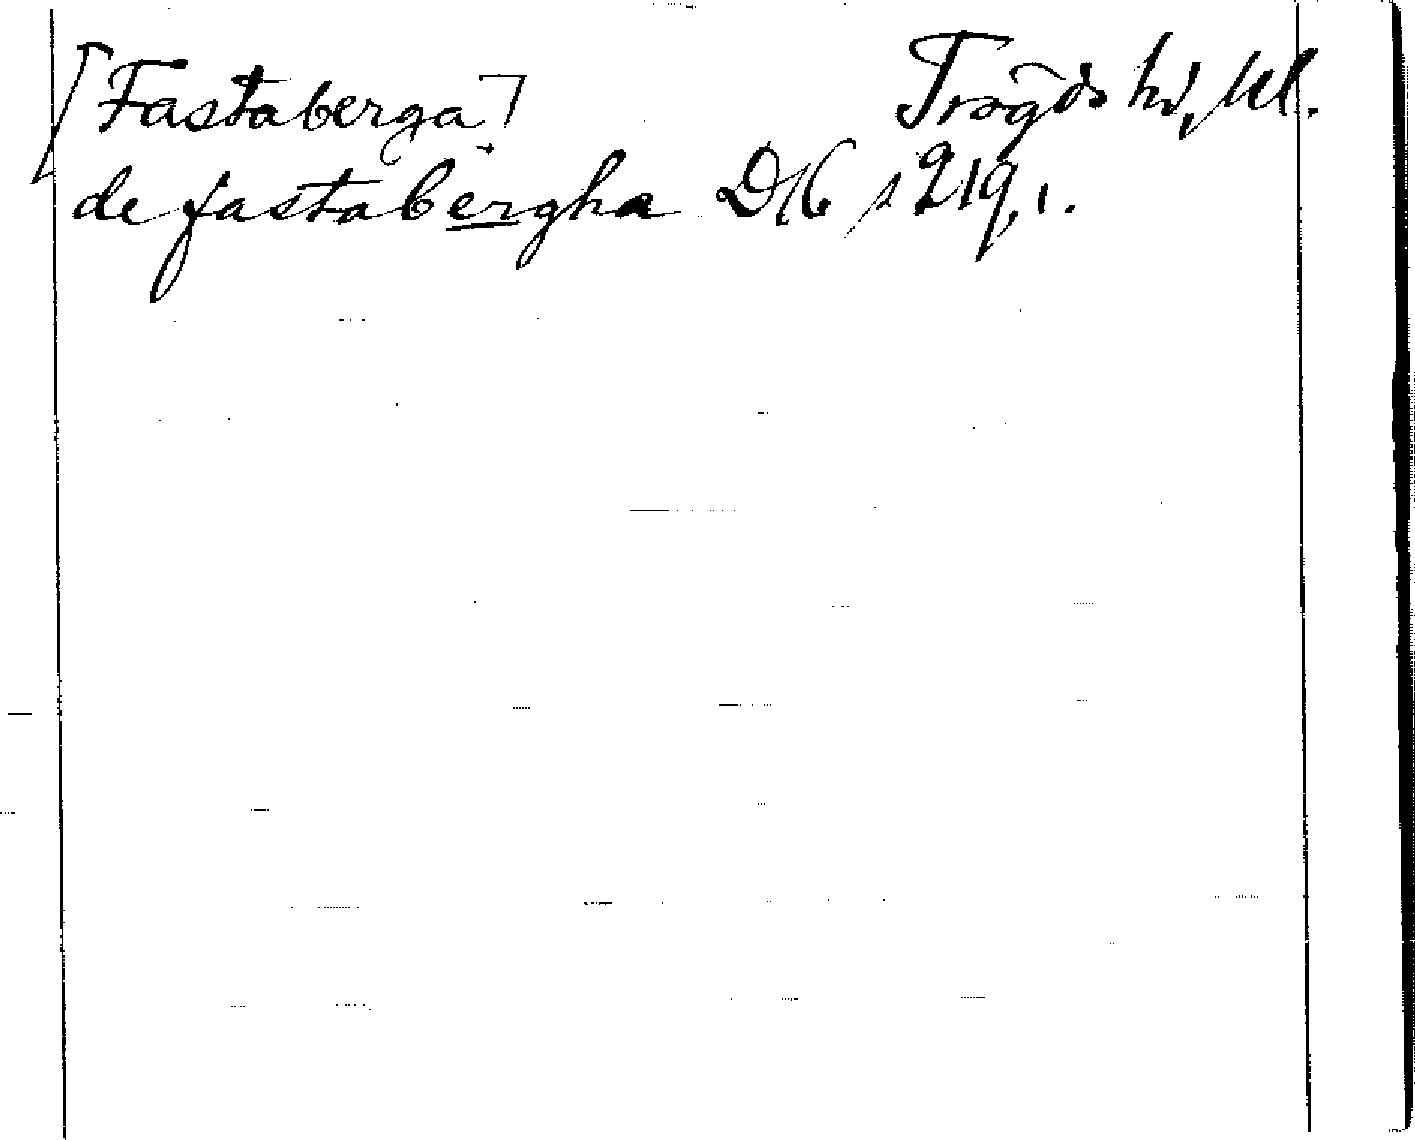 [Fastaberga] Trögds hd, Upl.
de fastabergha DK s 219, 1.